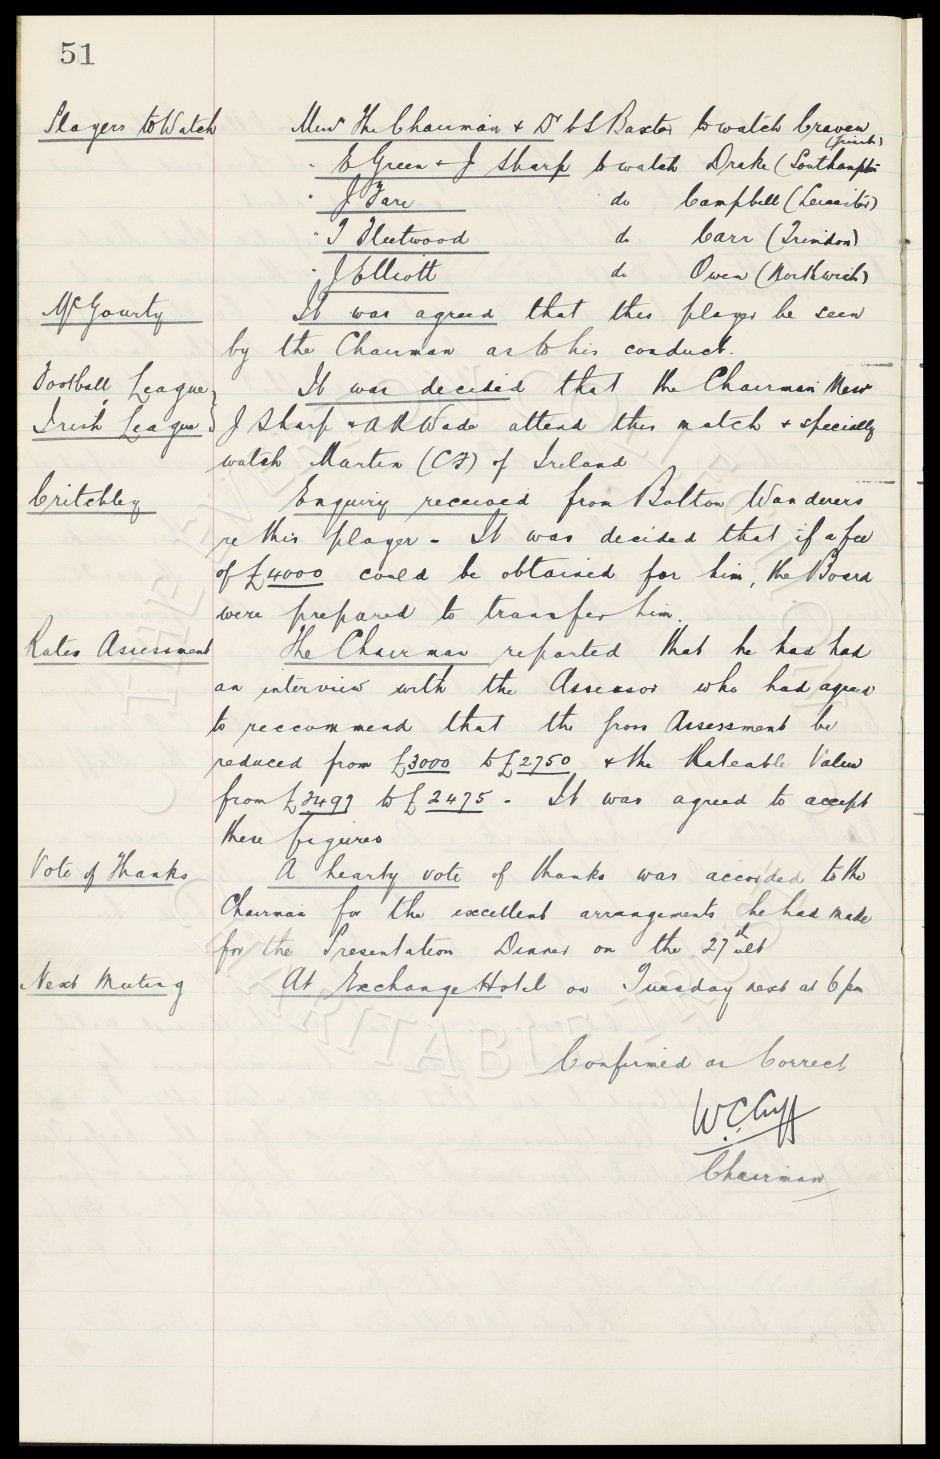 51
Players to Watch Messrs The Chairman & Dr C S Baxter to watch Craven
(Grimsby)
" E Green & J Sharp to watch Drake (Southampton
" J Fare do Campbell (Leicester)
" T Fleetwood do Carr (Trimdon)
" J Elliott do Owen (Northwich)
McGourty It was agreed that this player be seen
by the Chairman as to his conduct.
Football League It was decided that the Chairman Messrs
Irish League J Sharp & A R Wade attend this match & specially
watch Martin (CF) of Ireland
Critchley Enquiry received from Bolton Wanderers
re this player - It was decided that if a fee
of £4000 could be obtained for him, the Board
were prepared to transfer him.
Rates Assessment The Chairman reported that he had had
an interview with the Assessor who had agreed
to reccommend that the gross Assessment be
reduced from £3000 to £2750 & the Rateable Value
from £2497 to £2475 - It was agreed to accept
these figures
Vote of Thanks A hearty vote of thanks was accorded to the
Chairman for the excellent arrangements he had made
for the Presentation Dinner on the 27th ult
Next Meeting At Exchange Hotel on Tuesday next at 6 pm
Confirmed as Correct
W.C. Cuff
Chairman
THE EVERTON COLLECTION
CHARITABLE TRUST